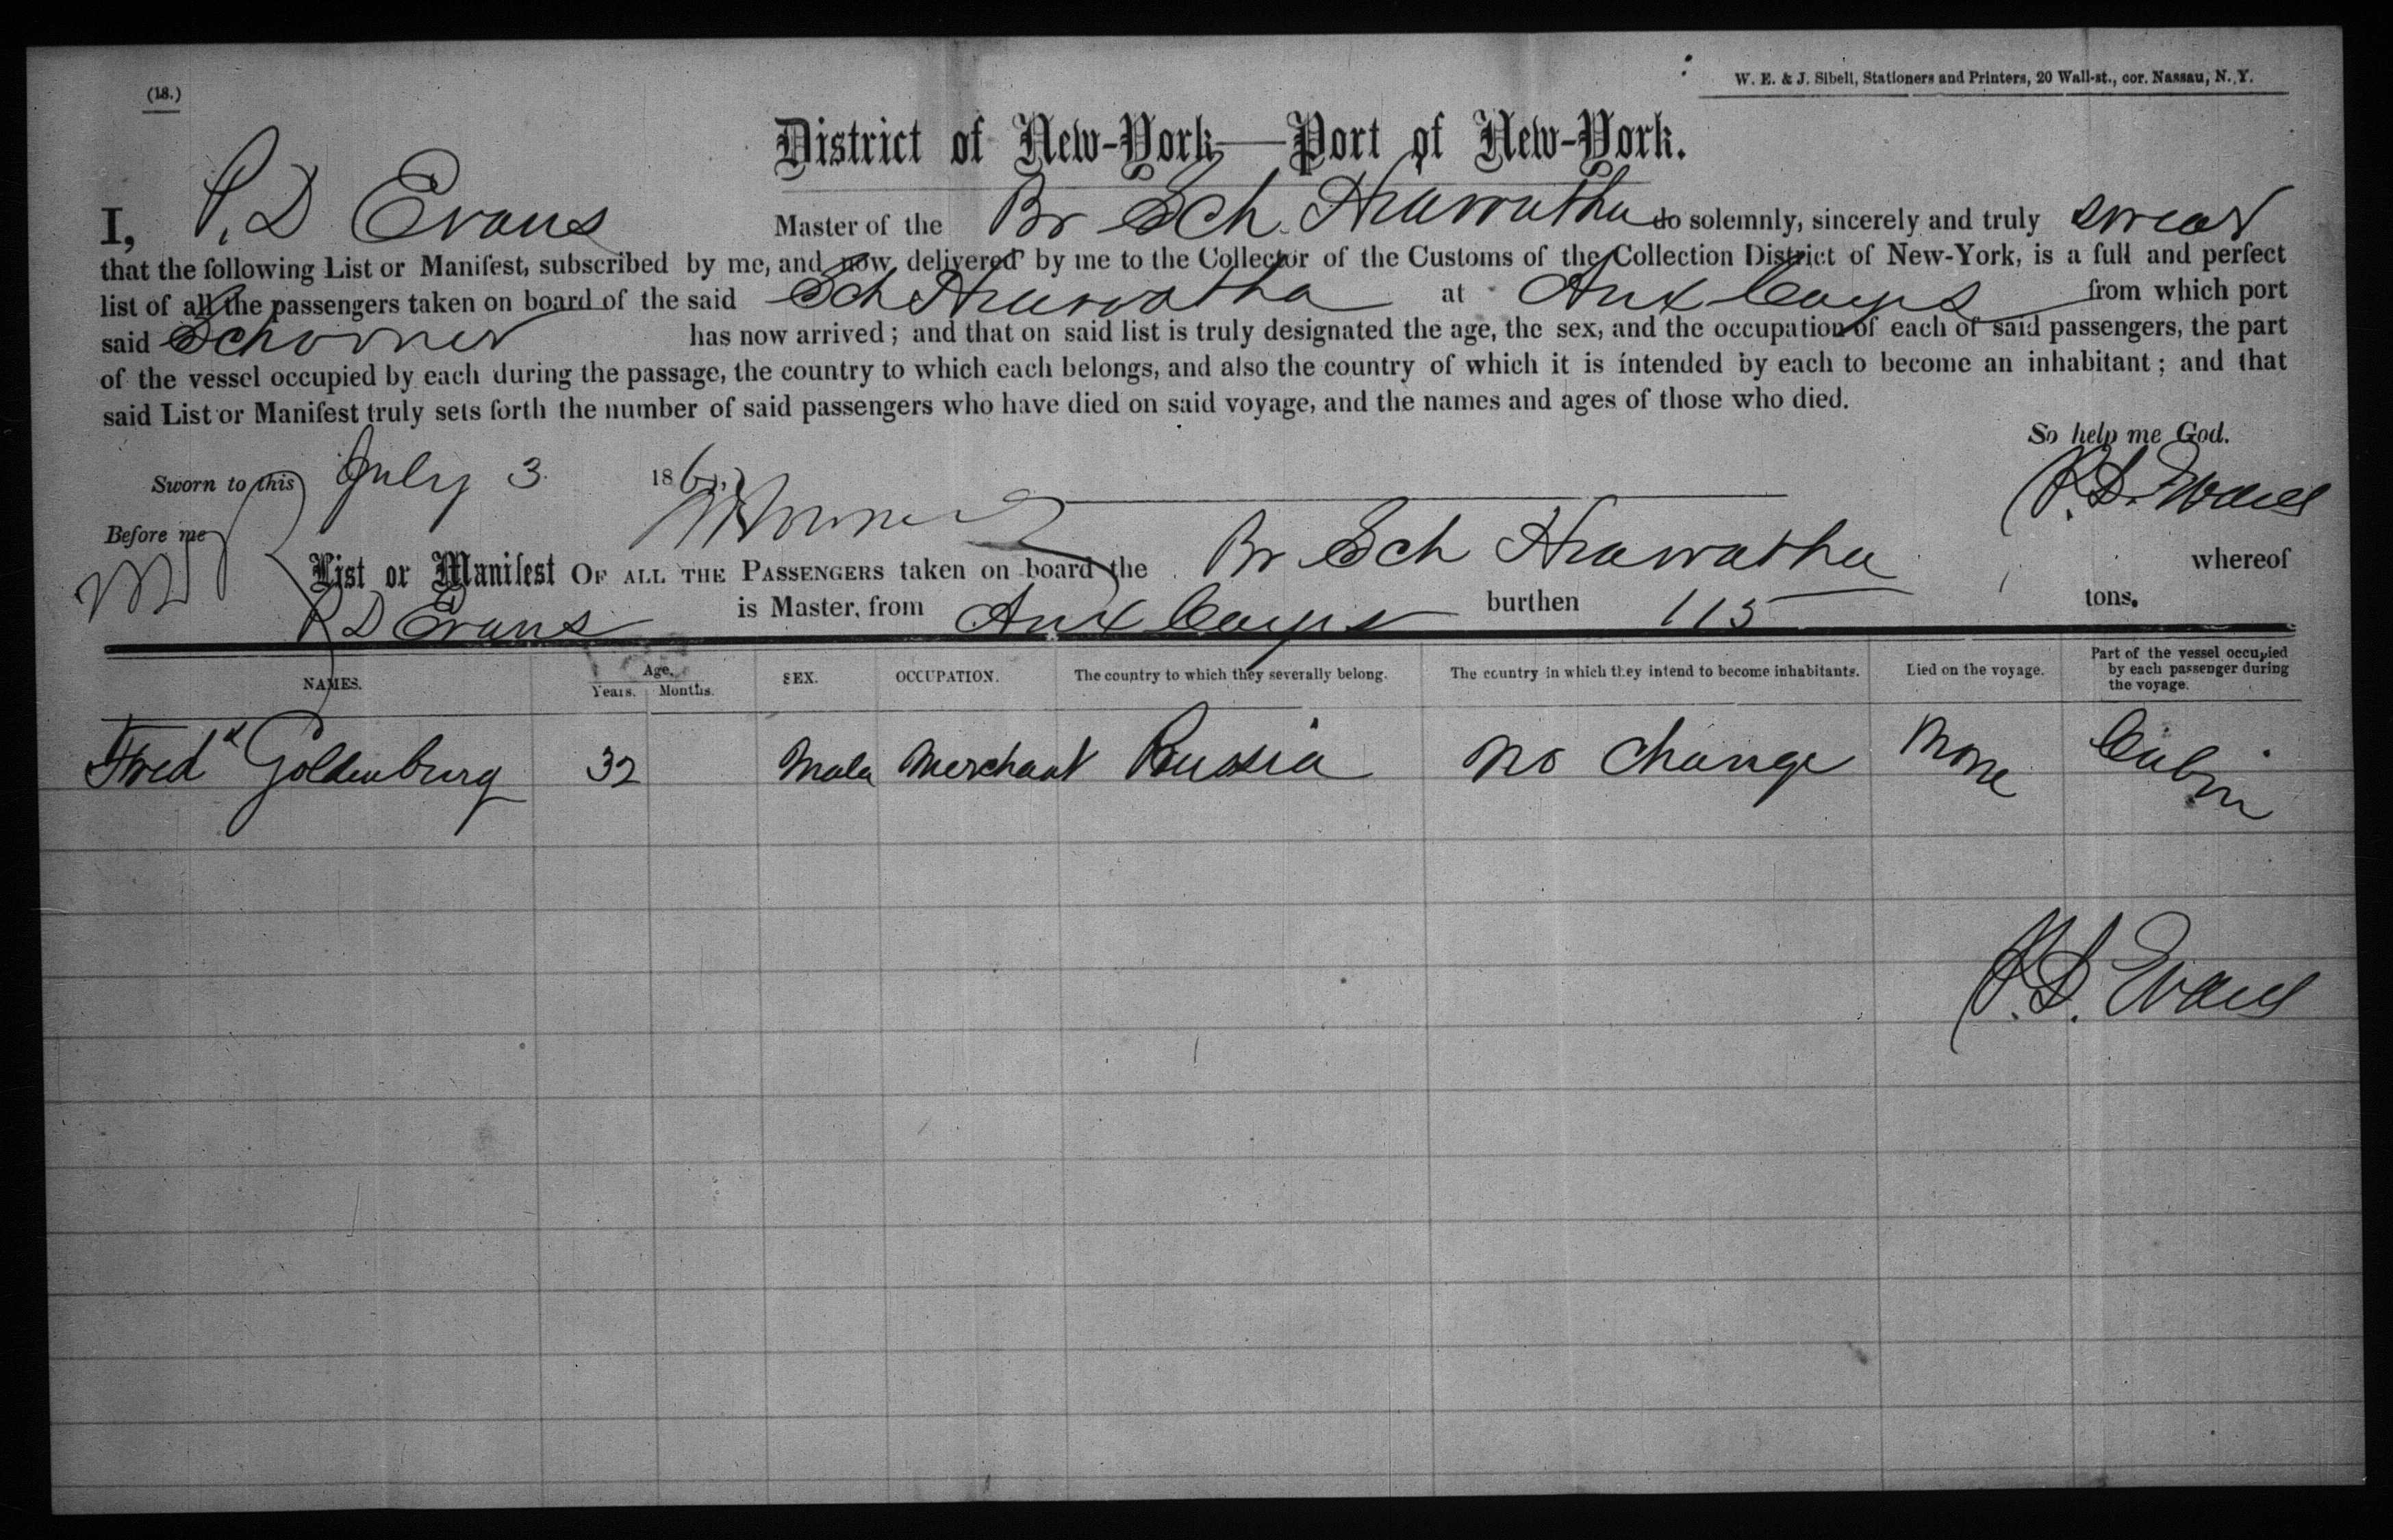 (18.)
W. E. & J. Sibell, Stationers and Printers, 20 Wall-st., cor. Nassau, N. Y.
District of New-York—Port of New-York.
I, P. D Evans Master of the Br Sch Hiawatha do solemnly, sincerely and truly swear
that the following List or Manifest, subscribed by me, and now delivered by me to the Collector of the Customs of the Collection District of New-York, is a full and perfect
list of all the passengers taken on board of the said Sch Hiawatha at Aux Cayes from which port
said Schooner has now arrived; and that on said list is truly designated the age, the sex, and the occupation of each of said passengers, the part
of the vessel occupied by each during the passage, the country to which each belongs, and also the country of which it is intended by each to become an inhabitant; and that
said List or Manifest truly sets forth the number of said passengers who have died on said voyage, and the names and ages of those who died.
So help me God.
Sworn to this July 3 186 P. D. Evans
Before me
List or Manifest OF ALL THE PASSENGERS taken on board the Br Sch Hiawatha whereof
P D Evans is Master, from Aux Cayes burthen 115 tons.
NAMES. Age. Years. Months. SEX. OCCUPATION. The country to which they severally belong. The country in which they intend to become inhabitants. Died on the voyage. Part of the vessel occupied by each passenger during the voyage.
Fred^k Goldenburg 32 Male Merchant Russia No Change None Cabin
P. D. Evans